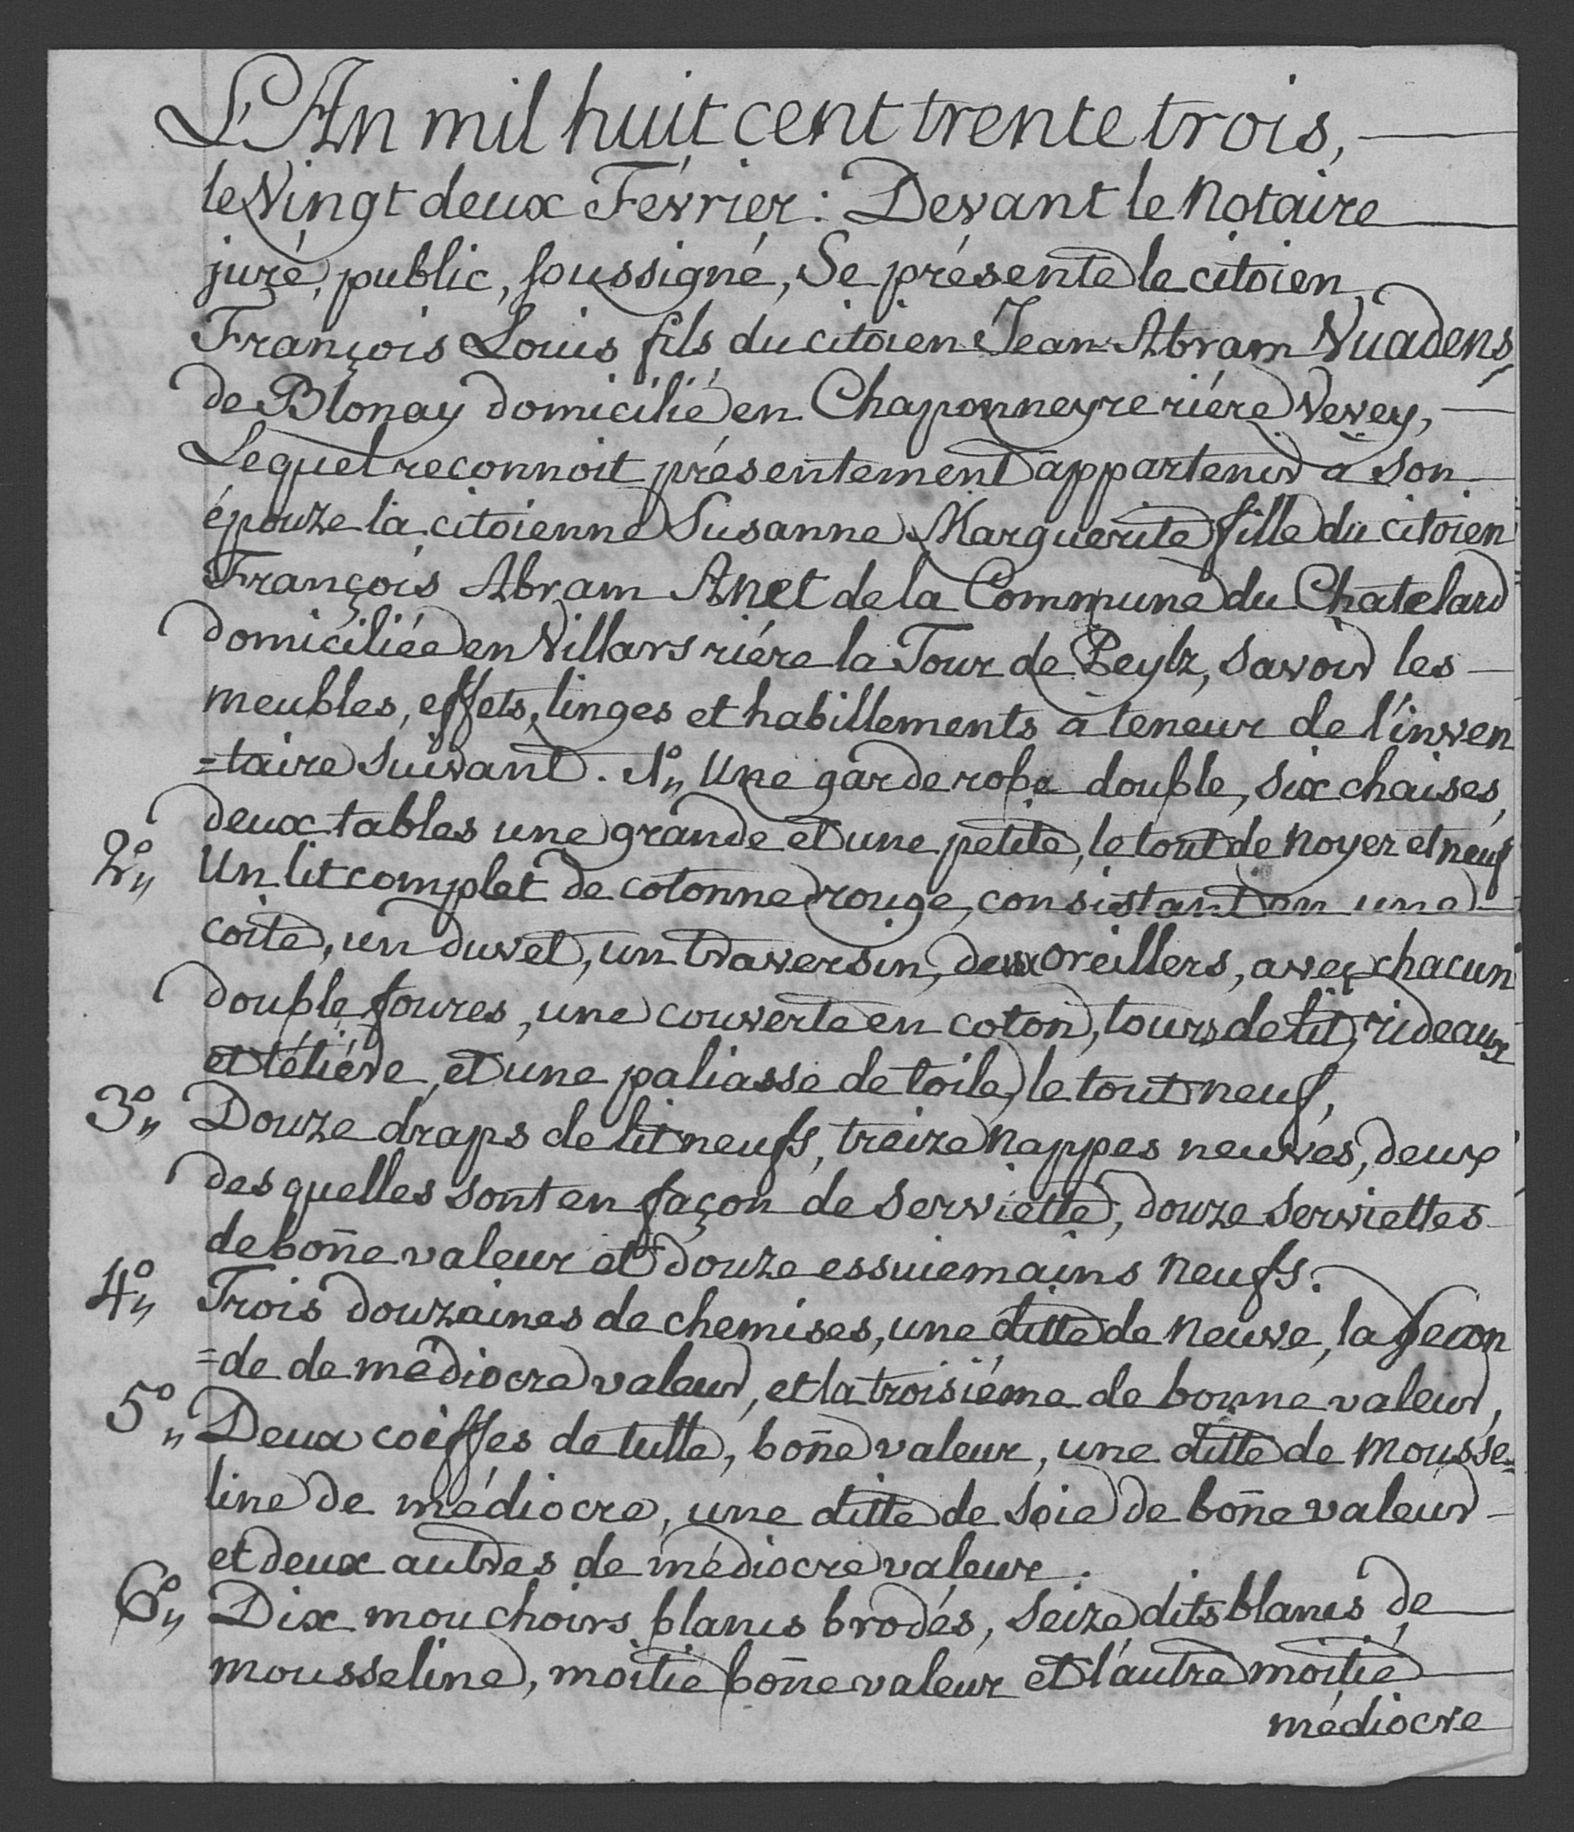 L'An mil huit cent trente trois,
le Vingt deux Février : Devant le Notaire
juré, public, soussigné, Se présente le citoien
François Louis fils du citoien Jean Abram Vuadens,
de Blonay domicilié en Chaponneyre riére Vevey,
Lequel reconnoit présentement appartenir à son
épouze la citoienne Susanne Marguerite fille du citoien
François Abram Anet de la Commune du Chatelard
domiciliée en Villars riére la Tour de Peylz, savoir les
meubles, effets, linges et habillements à teneur de l'inven
=taire suivant. 1°„ Une garderobe double, six chaises,
deux tables une grande et une petite, le tout de noyer et neuf
2°„ Un lit complet de cotonne rouge, consistant en une
coite, un duvet, un traversin, deux oreillers, avec chacun
double foures, une couverte en coton, tours de lit, rideaux
et tétiére, et une paliasse de toile, le tout neuf,
3°„ Douze draps de lit neufs, treize nappes neuves, deux
des quelles sont en façon de serviette, douze serviettes
de bone valeur et douze essuiemains neufs.
4°„ Trois douzaines de chemises, une ditte de neuve, la secon
=de de médiocre valeur, et la troisiéme de bonne valeur,
5°„ Deux coiffes de tulle, bone valeur, une ditte de mousse=
line de médiocre, une ditte de soie de bone valeur
et deux autres de médiocre valeur.
6°„ Dix mouchoirs blancs brodés, seize dits blancs de
mousseline, moitié bone valeur et l'autre moitié
médiocre